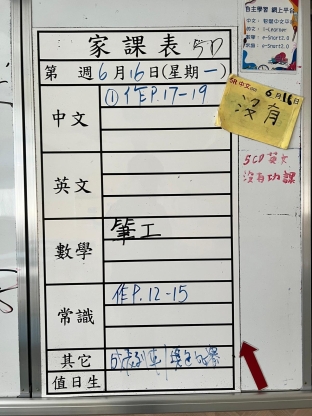 家課表 5D
第 週6月16日(星期一)
中文 ①作P.17-19
英文
數學 筆工
常識 作P.12-15
其它
值日生
自主學習 網上平台
6月16日
沒有
5CD英文
沒有功課